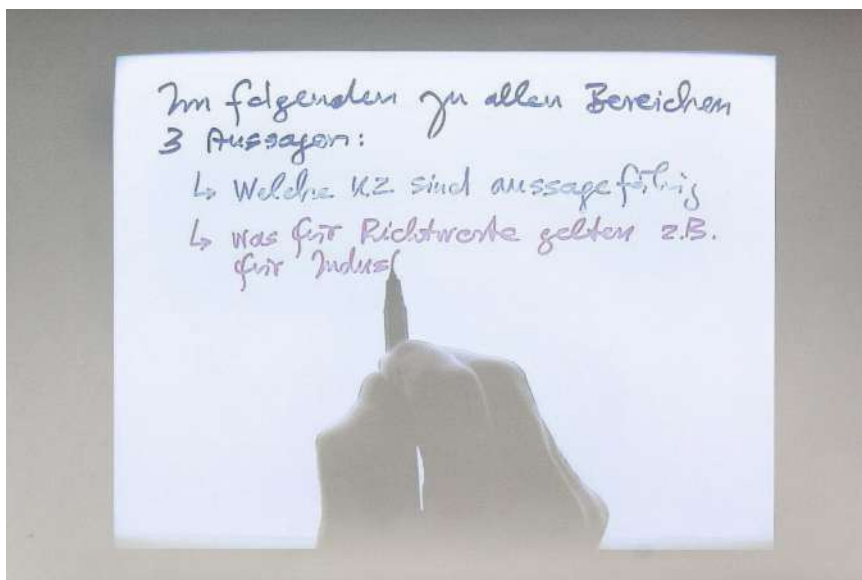 Im folgenden zu allen Bereichen
3 Aussagen:
↳ Welche KZ sind aussagefähig
↳ was für Richtwerte gelten z.B.
für Indus